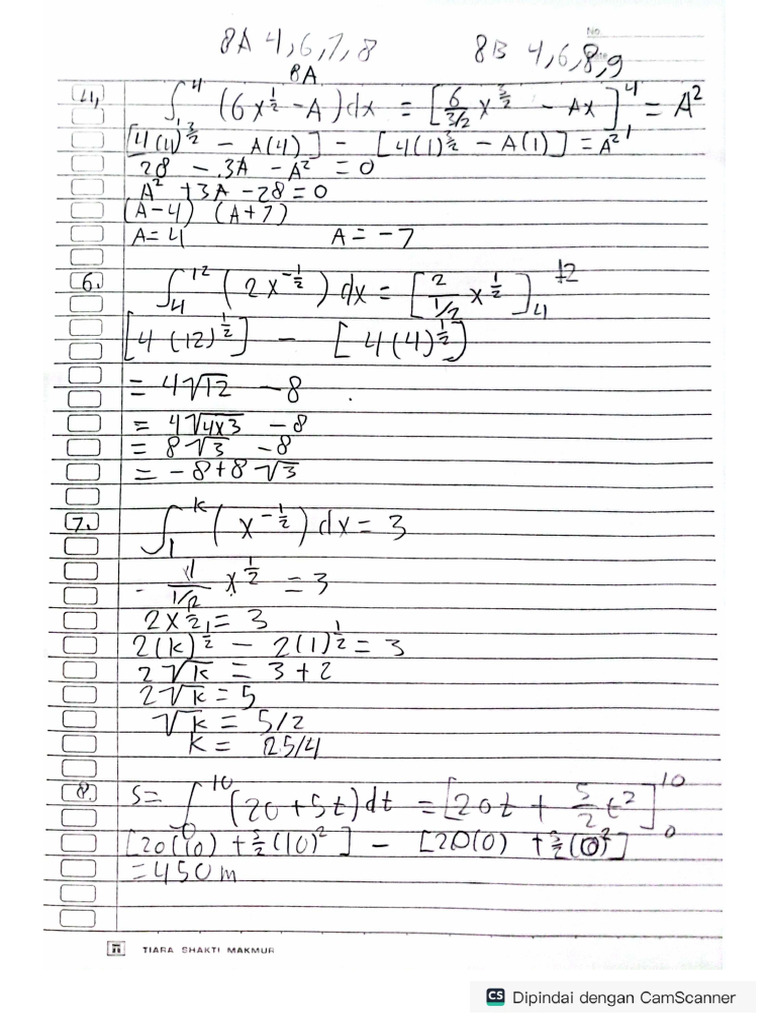 8A 4,6,7,8 8B 4,6,8,9
No.
Date
8A
4. ∫₁⁴ (6x^½ - A)dx = [6/(3/2) x^(3/2) - Ax]₁⁴ = A²
[4(4)^(3/2) - A(4)] - [4(1)^(3/2) - A(1)] = A²
28 - 3A - A² = 0
A² + 3A - 28 = 0
(A-4) (A+7)
A = 4 A = -7
6. ∫₄¹² (2x^(-½)) dx = [2/(1/2) x^½]₄¹²
[4(12)^½] - [4(4)^½]
= 4√12 - 8
= 4√4x3 - 8
= 8√3 - 8
= -8+8√3
7. ∫₁ᵏ (x^(-½)) dx = 3
1/(1/2) x^½ = 3
2x^½ = 3
2(k)^½ - 2(1)^½ = 3
2√k = 3+2
2√k = 5
√k = 5/2
k = 25/4
8. S = ∫₀¹⁰ (20+5t)dt = [20t + 5/2 t²]₀¹⁰
[20(10) + 5/2(10)²] - [20(0) + 5/2(0)²]
= 450 m
TIARA SHAKTI MAKMUR
CS Dipindai dengan CamScanner